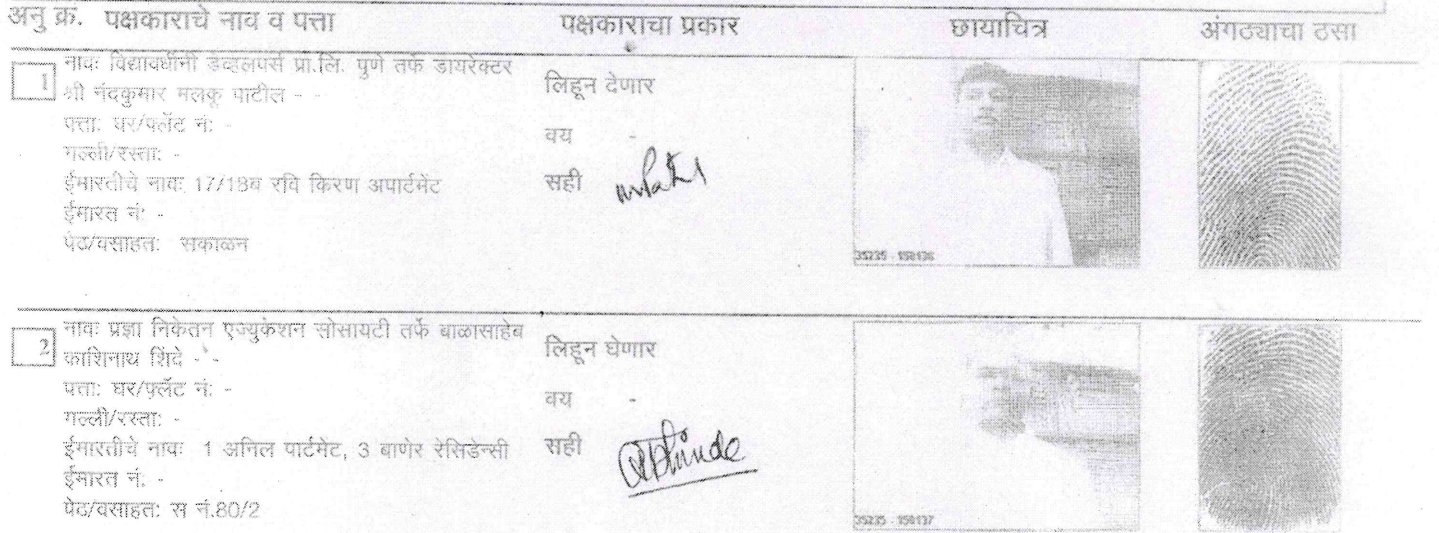 अनु क्र. पक्षकाराचे नाव व पत्ता पक्षकाराचा प्रकार छायाचित्र अंगठ्याचा ठसा
1
नावः विद्यावर्धीनी डेव्हलपर्स प्रा.लि. पुणे तर्फे डायरेक्टर
श्री नंदकुमार मलकू पाटील - -
पत्ताः घर/फ्लॅट नंः -
गल्ली/रस्ताः -
ईमारतीचे नावः 17/18ब रवि किरण अपार्टमेंट
ईमारत नंः -
पेठ/वसाहतः सकाळन
लिहून देणार
वय -
सही
35235 - 159136
2
नावः प्रज्ञा निकेतन एज्युकेशन सोसायटी तर्फे बाळासाहेब
काशिनाथ शिंदे - -
पत्ताः घर/फ्लॅट नंः -
गल्ली/रस्ताः -
ईमारतीचे नावः 1 अनिल पार्टमेंट, 3 बाणेर रेसिडेन्सी
ईमारत नंः -
पेठ/वसाहतः स नं.80/2
लिहून घेणार
वय -
सही
35235 - 159137